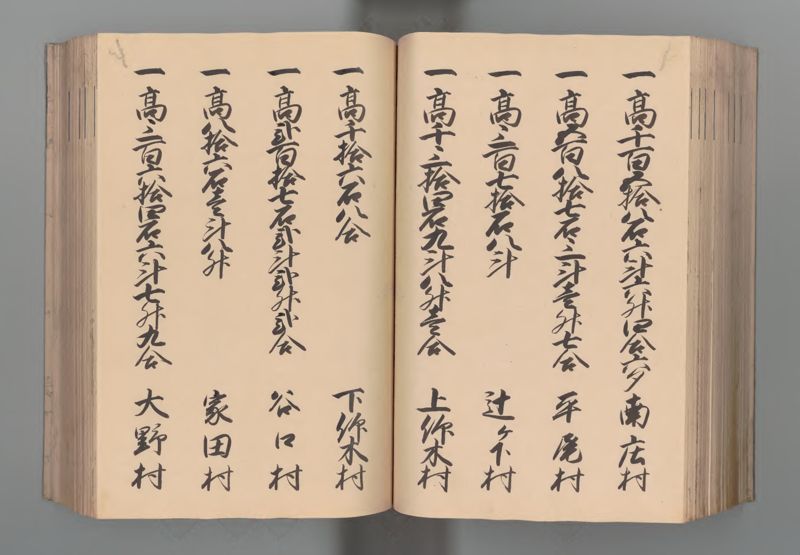 一高千百六拾八石六斗六升四合六夕 南庄村
一高六百八拾七石三斗壱升七合 平尾村
一高三百七拾石八斗 辻ヶ下村
一高千三拾四石九斗八升壱合 上弥木村
一高千拾六石八合 下弥木村
一高弐百拾七石弐斗弐升弐合 谷口村
一高八拾六石壱斗八升 家田村
一高三百六拾四石六斗七升九合 大野村